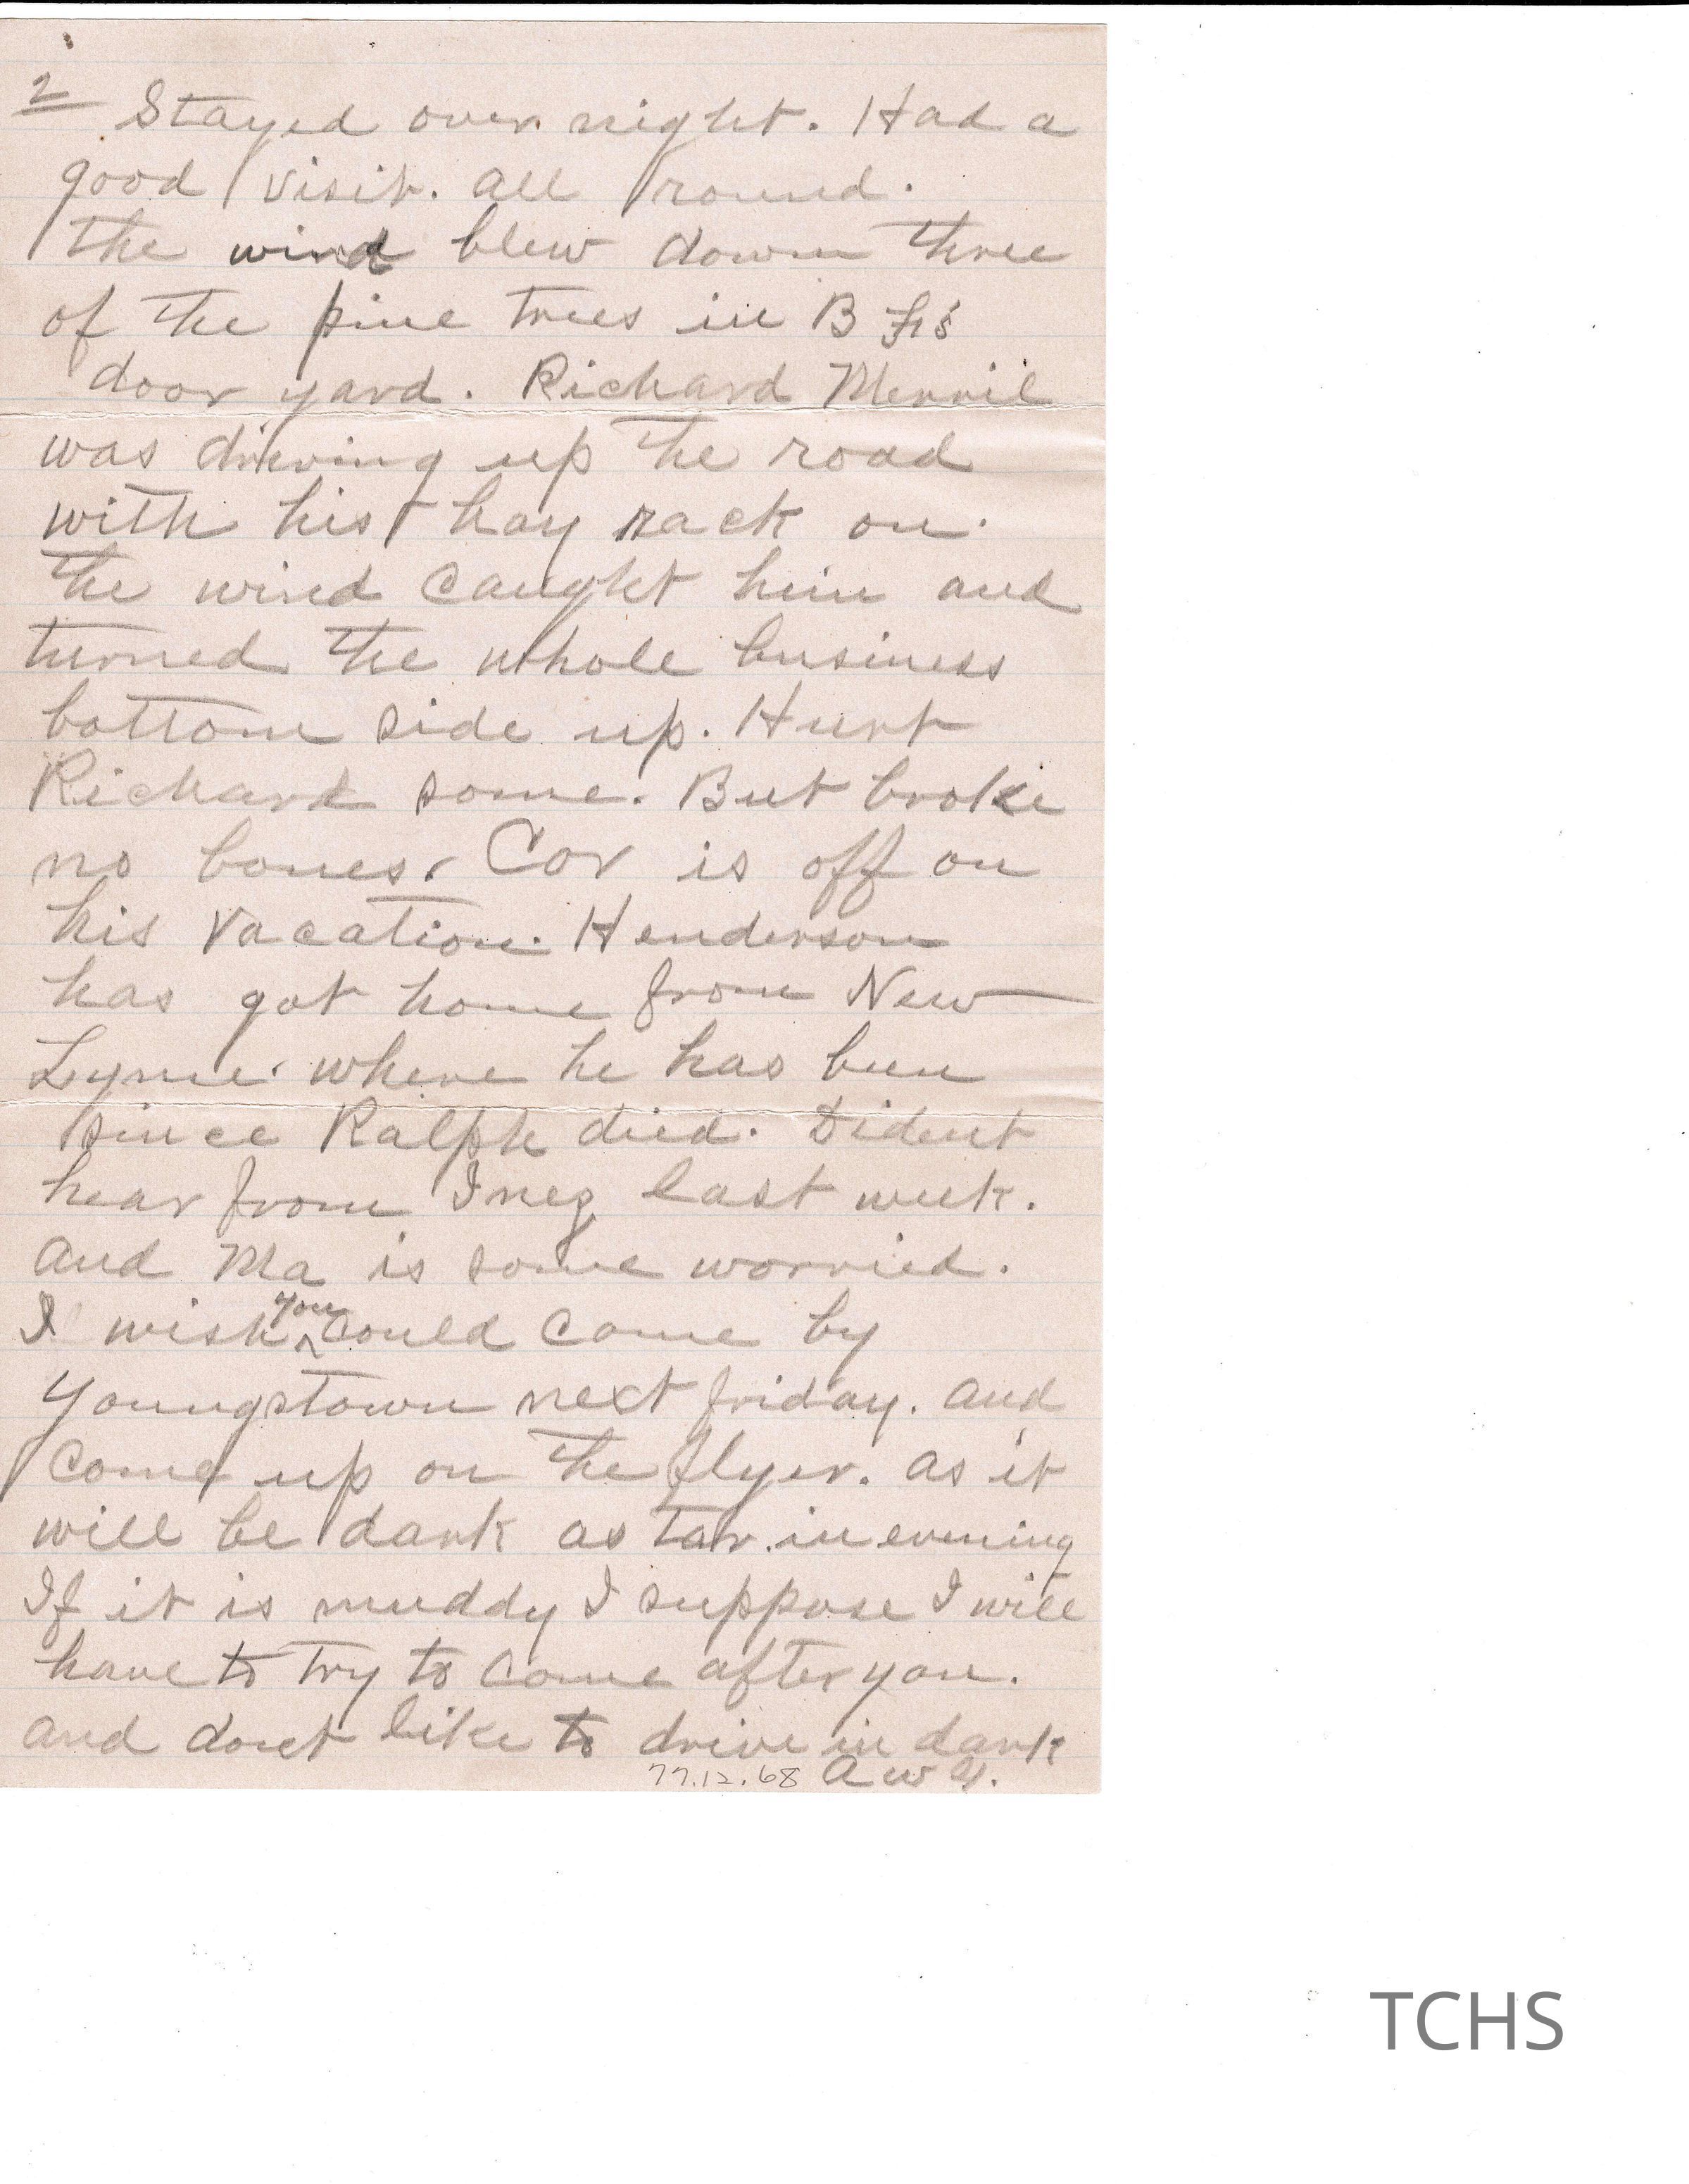 2 Stayed over night. Had a
good visit. all round.
The wind blew down three
of the pine trees in B F's
door yard. Richard Merril
was driving up the road
with his hay rack on.
The wind caught him and
turned the whole business
bottom side up. Hurt
Richard some. But broke
no bones. Cox is off on
his vacation. Henderson
has got home from New
Lyme. where he has been
since Ralph died. Dident
hear from Inez last week.
and Ma is some worried.
I wish you could come by
Youngstown next friday. and
come up on the flyer. as it
will be dark as tar in evening
If it is muddy I suppose I will
have to try to come after you.
and dont like to drive in dark
77.12.68 A W
TCHS